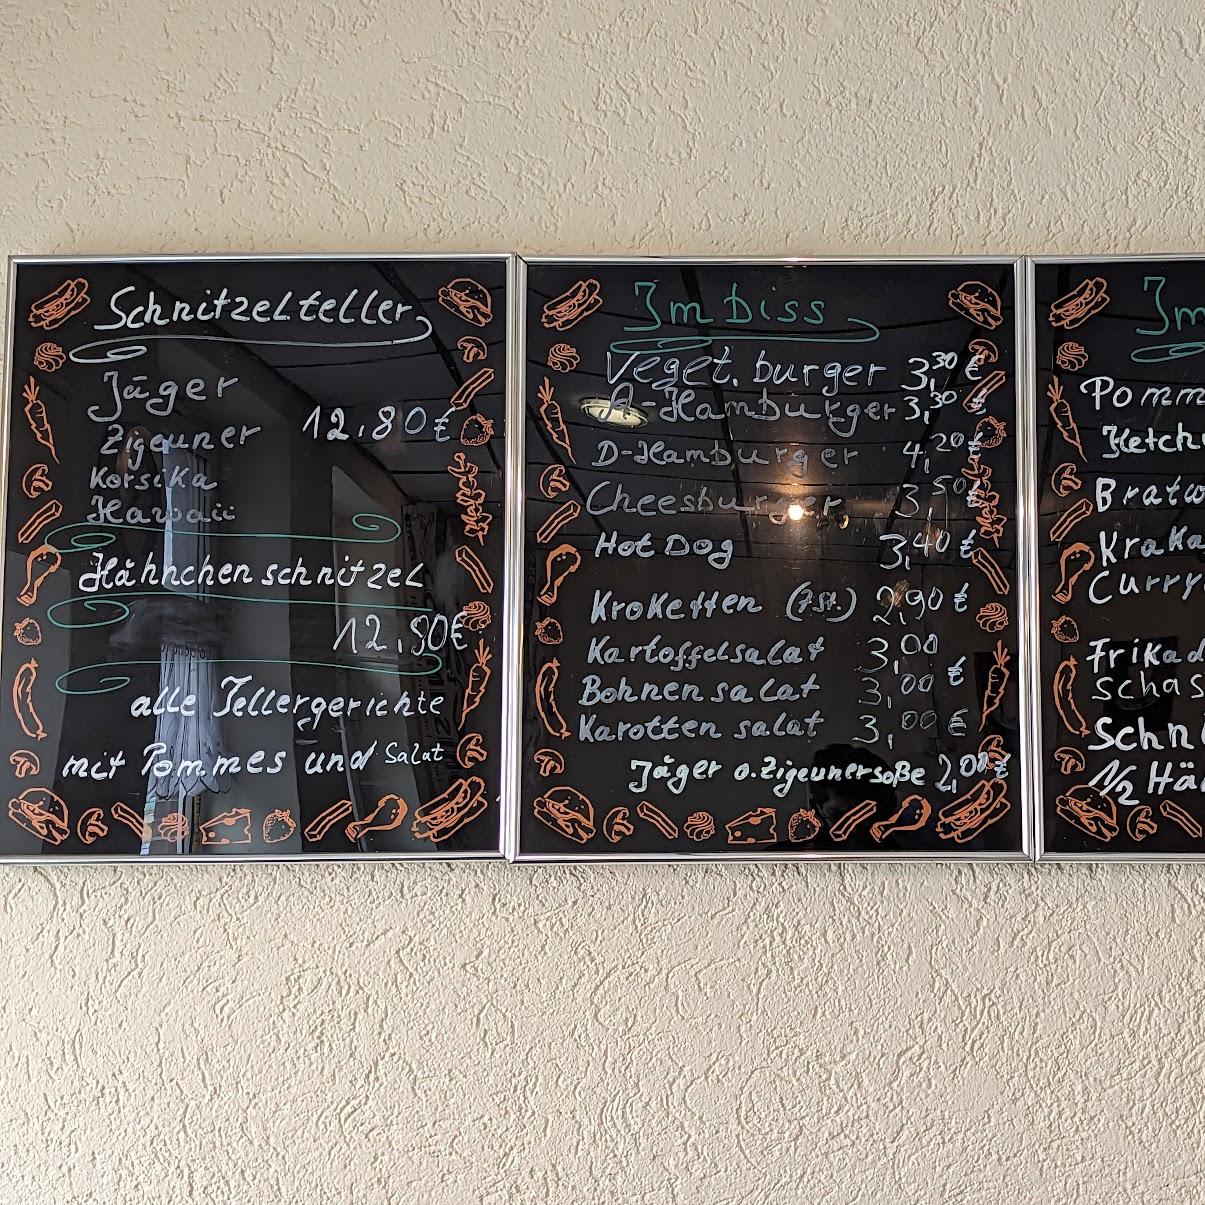 Schnitzelteller
Jäger
Zigeuner 12,80€
Korsika
Hawaii
Hähnchenschnitzel
12,80€
alle Tellergerichte
mit Pommes und Salat
Imbiss
Veget. burger 3,30 €
A-Hamburger 3,30 €
D-Hamburger 4,20€
Cheesburger 3,50€
Hot Dog 3,40 €
Kroketten (7 St.) 2,90 €
Kartoffelsalat 3,00
Bohnensalat 3,00 €
Karotten salat 3,00 €
Jäger o. Zigeunersoße 2,00 €
Im
Pomm
Ketch
Bratw
Kraka
Curry
Frikad
Schas
Schni
1/2 Hä